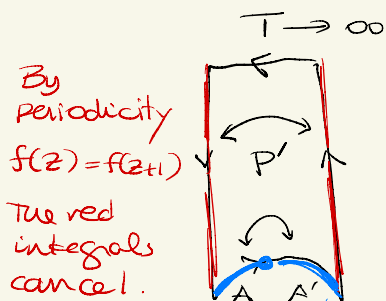 T → ∞
By
periodicity
f(z) = f(z+1)
P'
The red
integrals
cancel.
A A'